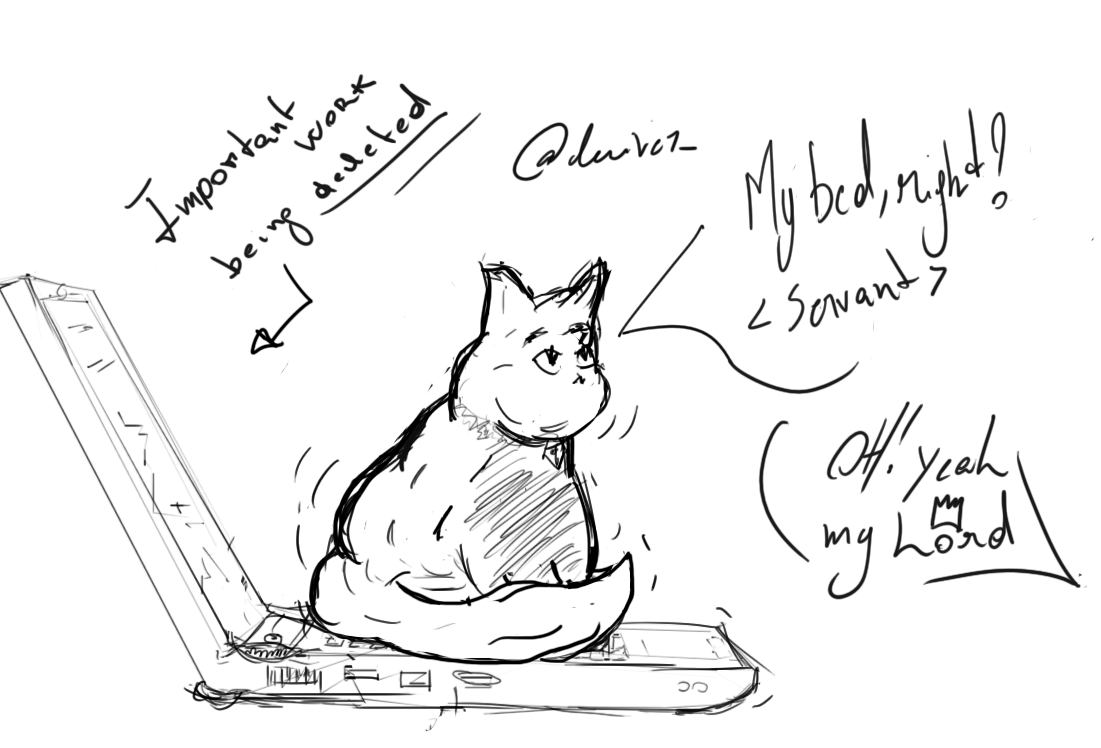 Important work
being deleted
My bed, right?
< Servant >
Oh! yeah
my Lord